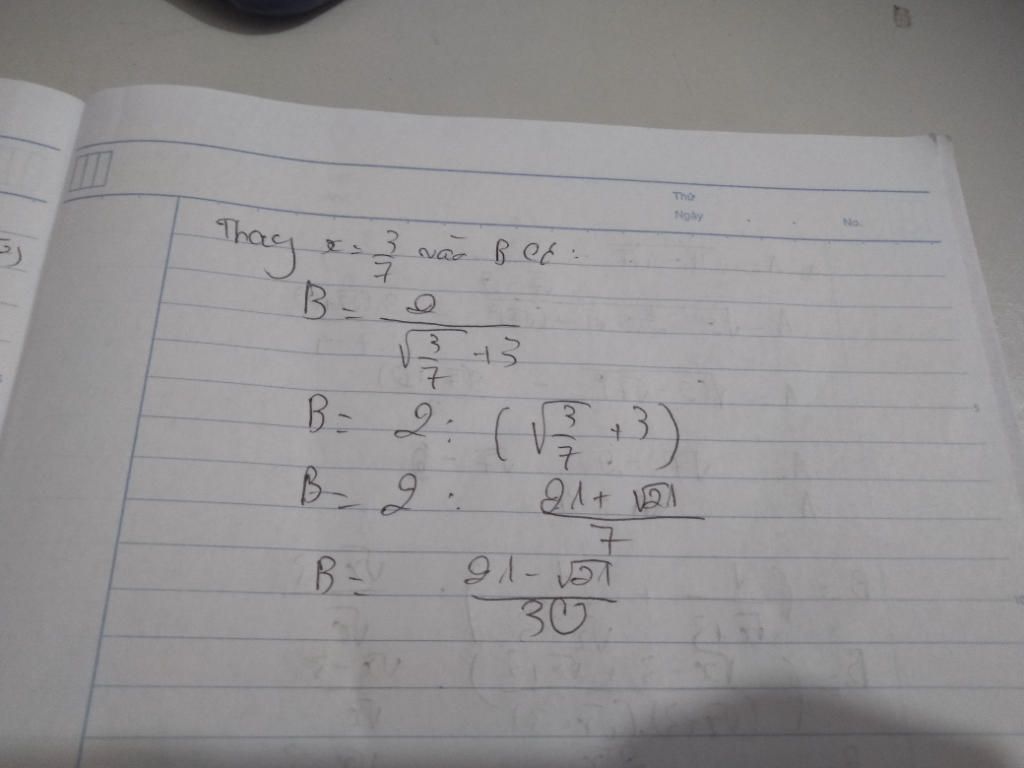 Thứ
Ngày . . No.
Thay x = 3/7 vào B Ct :
B = 2/(√(3/7) + 3)
B = 2 : (√(3/7) + 3)
B = 2 : (21 + √21)/7
B = (21 - √21)/30